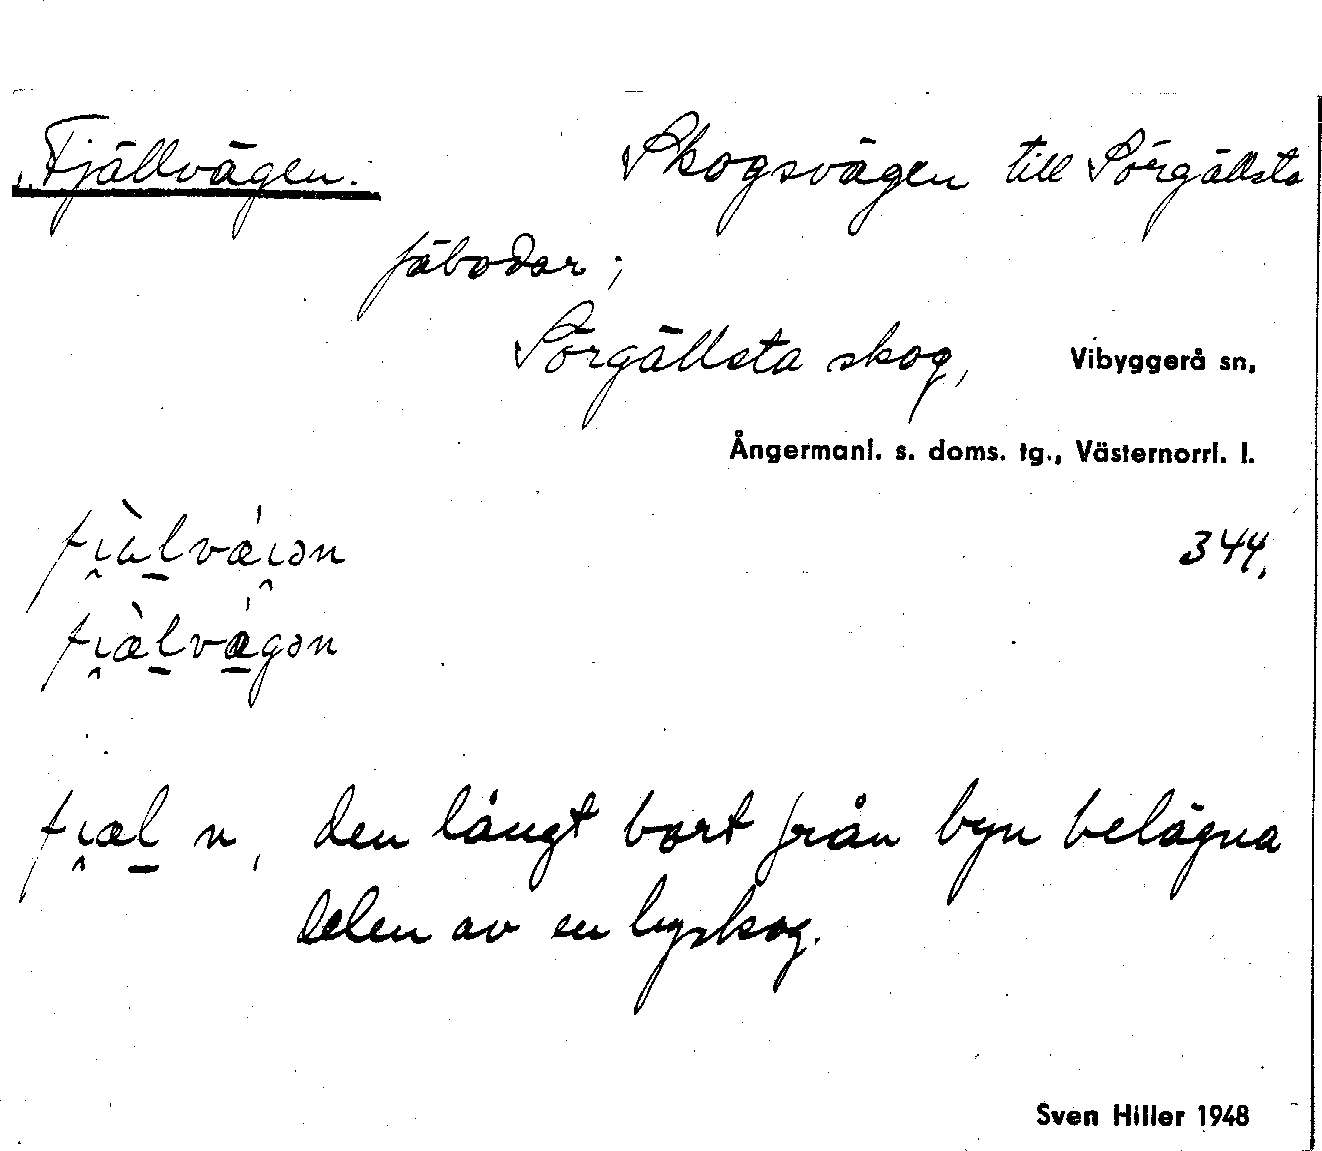 „Fjällvägen. Skogsvägen till Sörgällsta
fäbodar;
Sörgällsta skog, Vibyggerå sn,
Ångermanl. s. doms. tg., Västernorrl. l.
344.
fi̯æl n, den långt bort från byn belägna
delen av en byskog.
Sven Hiller 1948